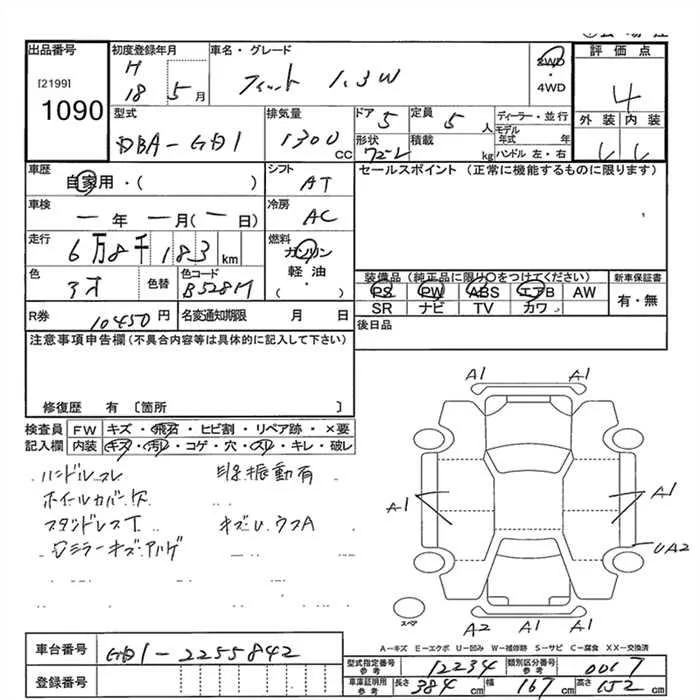 出品番号
[2199]
1090
初度登録年月
H
18 5月
車名・グレード
フィット 1.3W
2WD
・
4WD
評価点
4
外装 内装
型式
DBA-GD1
排気量
1300
CC
ドア 5
形状
ワゴン
定員 5 人
積載 kg
ディーラー・並行
モデル
年式 年
ハンドル 左・右
車歴
自家用・( )
シフト
AT
セールスポイント (正常に機能するものに限ります)
車検
ー年 ー月(ー日)
冷房
AC
走行
6万8千183km
燃料
ガソリン
軽油・
( )
色
色替
色コード
B528M
装備品(純正品に限り○をつけてください)
PS PW ABS エアB AW
SR ナビ TV カワ
新車保証書
有・無
R券 10450円
名変通知期限 月 日
後日品
注意事項申告欄(不具合内容等は具体的に記入して下さい)
修復歴 有〔箇所 〕
検査員
記入欄
FW キズ・飛石・ヒビ割・リペア跡・×要
内装 キズ・汚レ・コゲ・穴・スレ・キレ・破レ
ハンドルスレ
振動有
ホイールカバーキズ
キズU.ウスA
ミラーキズ・ハゲ
A1 A1
A1 A1
UA2
スペア
A2 A1 A1
A-キズ E-エクボ U-凹み W-補修跡 S-サビ C-腐食 XX-交換済
車台番号 GD1-2255842
登録番号
型式指定番号
参考
12234
類別区分番号
参考
0017
車庫証明用
参考
長さ 384cm 幅 167cm 高さ 152cm